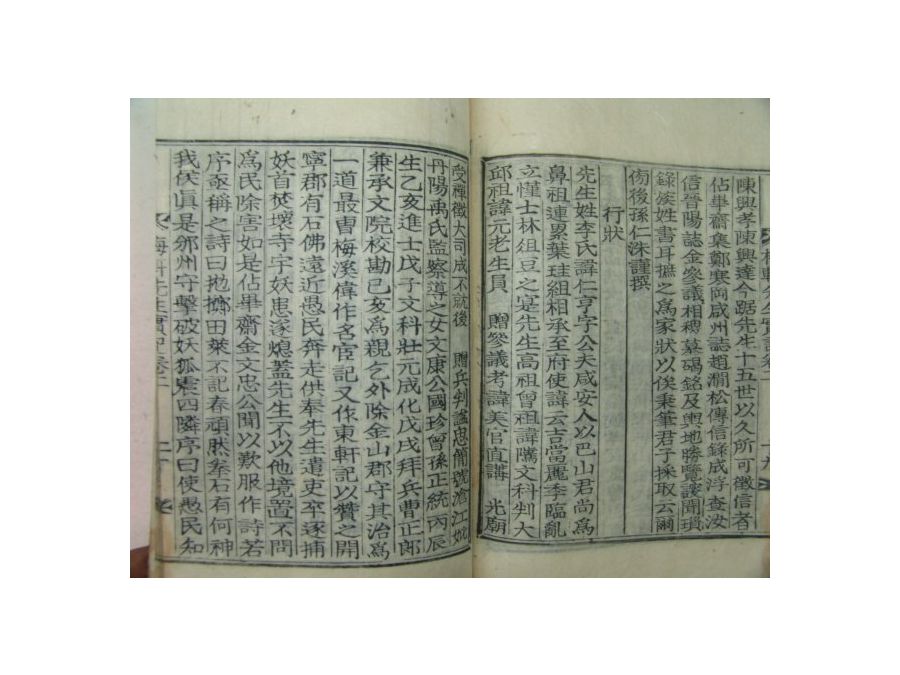 陳興孝陳興達今踞先生十五世以久所可徵信者
佔畢齋集鄭寒岡咸州誌趙澗松傳信錄成浮査汝
信晉陽誌金參議相稷墓碣銘及輿地勝覽諼聞瑣
錄淡姓書耳摭之爲家狀以俟秉筆君子採取云爾
傍後孫仁洙謹撰
行狀
先生姓李氏諱仁亨字公夫咸安人以巴山君尚爲
鼻祖連累葉珪組相承至府使諱云吉當麗季臨亂
立慬士林俎豆之寔先生高祖曾祖諱騰文科判大
邱祖諱元老生員 贈參議考諱美官直講 光廟
受禪徵大司成不就後 贈兵判謚忠簡號滄江妣
丹陽禹氏監察導之女文康公國珍曾孫正統丙辰
生乙亥進士戊子文科壯元成化戊戌拜兵曹正郞
兼承文院校勘己亥爲親乞外除金山郡守其治爲
一道最曺梅溪偉作名宦記又作東軒記以贊之開
寧郡有石佛遠近愚民奔走供奉先生遣吏卒逐捕
妖首焚壞寺宇妖患遂熄蓋先生不以他境置不問
爲民除害如是佔畢齋金文忠公聞以歎服作詩若
序亟稱之詩曰抛擲田萊不記春頑然拳石有何神
我侯眞是邠州守擊破妖狐震四隣序曰使愚民知
梅軒先生實記卷二